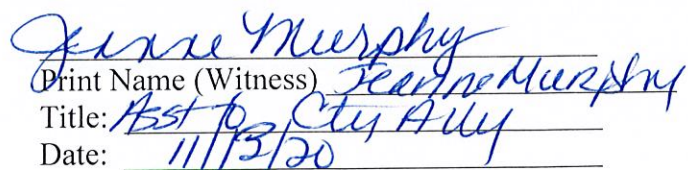 Jeanne Murphy
Print Name (Witness) Jeanne Murphy
Title: Asst to Cty Atty
Date: 11/13/20